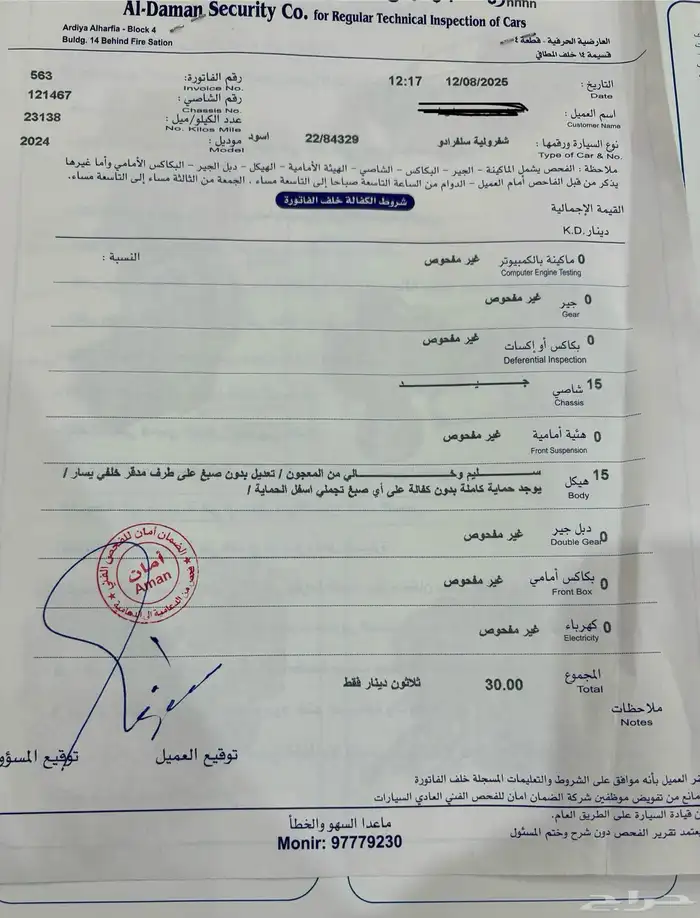 Al-Daman Security Co. for Regular Technical Inspection of Cars
Ardiya Alharfia - Block 4
Buldg. 14 Behind Fire Sation
العارضية الحرفية - قطعة ٤
قسيمة ١٤ خلف المطافي
التاريخ : 12/08/2025 12:17
Date
رقم الفاتورة: 563
Invoice No.
رقم الشاصي : 121467
Chassis No.
اسم العميل :
Customer Name
عدد الكيلو/ميل : 23138
No. Kilos Mile
نوع السيارة ورقمها : شفرولية سلفرادو 22/84329 اسود
Type of Car & No.
موديل : 2024
Model
ملاحظة : الفحص يشمل الماكينة - الجير - البكاكس - الشاصي - الهيئة الأمامية - الهيكل - دبل الجير - البكاكس الأمامي وأما غيرها
يذكر من قبل الفاحص أمام العميل - الدوام من الساعة التاسعة صباحا إلى التاسعة مساء ، الجمعة من الثالثة مساء إلى التاسعة مساء.
شروط الكفالة خلف الفاتورة
القيمة الإجمالية
دينار .K.D
0 ماكينة بالكمبيوتر غير مفحوص النسبة :
Computer Engine Testing
0 جير غير مفحوص
Gear
0 بكاكس أو إكسات غير مفحوص
Deferential Inspection
15 شاصي جـيـد
Chassis
0 هئية أمامية غير مفحوص
Front Suspension
15 هيكل سـليم وخـالي من المعجون / تعديل بدون صبغ على طرف مدقر خلفي يسار /
Body
يوجد حماية كاملة بدون كفالة على أي صبغ تجملي اسفل الحماية /
0 دبل جير غير مفحوص
Double Gear
0 بكاكس أمامي غير مفحوص
Front Box
0 كهرباء غير مفحوص
Electricity
المجموع 30.00 ثلاثون دينار فقط
Total
ملاحظات
Notes
الضمان أمان للفحص الفني
أمان
Aman
توقيع العميل
توقيع
العميل بأنه موافق على الشروط والتعليمات المسجلة خلف الفاتورة
من تفويض موظفين شركة الضمان امان للفحص الفني العادي السيارات
قيادة السيارة على الطريق العام.
تقرير الفحص دون شرح وختم المسئول
ماعدا السهو والخطأ
Monir: 97779230
حراج